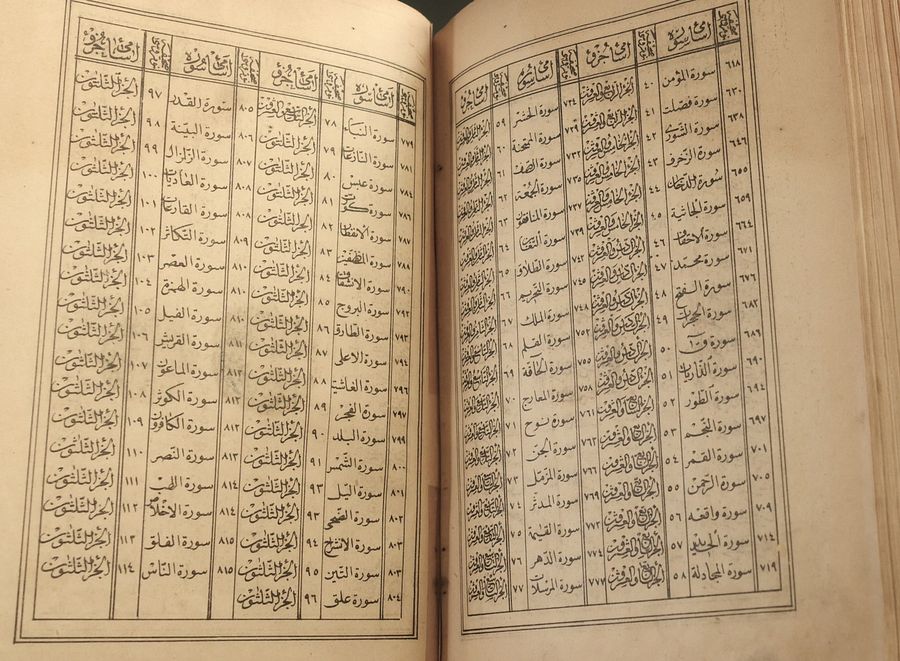 اسامئ سوره اسامئ جزؤ اسامئ سوره اسامئ جزؤ
٦١٨ سورة المؤمن ٤٠ الجزء الرابع والعشرون
٦٣٠ سورة فصلت ٤١ الجزء الرابع والعشرون
٦٣٨ سورة الشورى ٤٢ الجزء الخامس والعشرون
٦٤٦ سورة الزخرف ٤٣ الجزء الخامس والعشرون
٦٥٥ سورة الدخان ٤٤ الجزء الخامس والعشرون
٦٥٩ سورة الجاثية ٤٥ الجزء الخامس والعشرون
٦٦٤ سورة الاحقاف ٤٦ الجزء السادس والعشرون
٦٧١ سورة محمد ٤٧ الجزء السادس والعشرون
٦٧٦ سورة الفتح ٤٨ الجزء السادس والعشرون
٦٨٢ سورة الحجرات ٤٩ الجزء السادس والعشرون
٦٨٦ سورة ق ٥٠ الجزء السادس والعشرون
٦٩٠ سورة الذاريات ٥١ الجزء السادس والعشرون
٦٩٤ سورة الطور ٥٢ الجزء السابع والعشرون
٦٩٧ سورة النجم ٥٣ الجزء السابع والعشرون
٧٠١ سورة القمر ٥٤ الجزء السابع والعشرون
٧٠٥ سورة الرحمن ٥٥ الجزء السابع والعشرون
٧٠٩ سورة واقعه ٥٦ الجزء السابع والعشرون
٧١٤ سورة الحديد ٥٧ الجزء السابع والعشرون
٧١٩ سورة المجادلة ٥٨
٧٢٤ سورة الحشر ٥٩
٧٢٩ سورة ممتحنة ٦٠
٧٣٢ سورة الصف ٦١
٧٣٥ سورة الجمعة ٦٢
٧٣٧ سورة المنافقو ٦٣
٧٣٩ سورة التغابن ٦٤
٧٤٢ سورة الطلاق ٦٥
٧٤٥ سورة التحريم ٦٦
٧٤٨ سورة الملك ٦٧
٧٥٢ سورة القلم ٦٨
٧٥٥ سورة الحاقة ٦٩
٧٥٨ سورة المعارج ٧٠
٧٦١ سورة نوح ٧١
٧٦٣ سورة الجن ٧٢
٧٦٦ سورة المزمل ٧٣
٧٦٩ سورة المدثر ٧٤
٧٧٢ سورة القيمة ٧٥
٧٧٤ سورة الدهر ٧٦
٧٧٧ سورة المرسلات ٧٧
اسامئ سوره اسامئ جزؤ اسامئ سوره اسامئ جزؤ
٧٧٩ سورة النباء ٧٨ الجزء التاسع والعشرون
٧٨١ سورة النازعات ٧٩ الجزء الثلثون
٧٨٤ سورة عبس ٨٠ الجزء الثلثون
٧٨٦ سورة كورت ٨١ الجزء الثلثون
٧٨٧ سورة الانفطار ٨٢ الجزء الثلثون
٧٨٨ سورة المطففين ٨٣ الجزء الثلثون
٧٩٠ سورة الانشقاق ٨٤ الجزء الثلثون
٧٩٢ سورة البروج ٨٥ الجزء الثلثون
٧٩٣ سورة الطارق ٨٦ الجزء الثلثون
٧٩٤ سورة الاعلى ٨٧ الجزء الثلثون
٧٩٦ سورة الغاشية ٨٨ الجزء الثلثون
٧٩٧ سورة الفجر ٨٩ الجزء الثلثون
٧٩٩ سورة البلد ٩٠ الجزء الثلثون
٨٠٠ سورة الشمس ٩١ الجزء الثلثون
٨٠١ سورة اليل ٩٣ الجزء الثلثون
٨٠٢ سورة الضحى ٩٣ الجزء الثلثون
٨٠٣ سورة الانشراح ٩٤ الجزء الثلثون
٨٠٣ سورة التين ٩٥ الجزء الثلثون
٨٠٤ سورة علق ٩٦ الجزء الثلثون
٨٠٥ سورة القدر ٩٧ الجزء الثلثون
٨٠٦ سورة البينة ٩٨ الجزء الثلثون
٨٠٧ سورة الزلزال ٩٩ الجزء الثلثون
٨٠٨ سورة العاديات ١٠٠ الجزء الثلثون
٨٠٨ سورة القارعات ١٠١ الجزء الثلثون
٨٠٩ سورة التكاثر ١٠٢ الجزء الثلثون
٨١٠ سورة العصر ١٠٣ الجزء الثلثون
٨١٠ سورة الهمزة ١٠٤ الجزء الثلثون
٨١٠ سورة الفيل ١٠٥ الجزء الثلثون
٨١١ سورة القريش ١٠٦ الجزء الثلثون
٨١٢ سورة الماعون ١٠٧ الجزء الثلثون
٨١٢ سورة الكوثر ١٠٨ الجزء الثلثون
٨١٢ سورة الكافرون ١٠٩ الجزء الثلثون
٨١٣ سورة النصر ١١٠ الجزء الثلثون
٨١٤ سورة اللهب ١١١ الجزء الثلثون
٨١٤ سورة الاخلاص ١١٢ الجزء الثلثون
٨١٥ سورة الفلق ١١٣ الجزء الثلثون
٨١٥ سورة الناس ١١٤ الجزء الثلثون